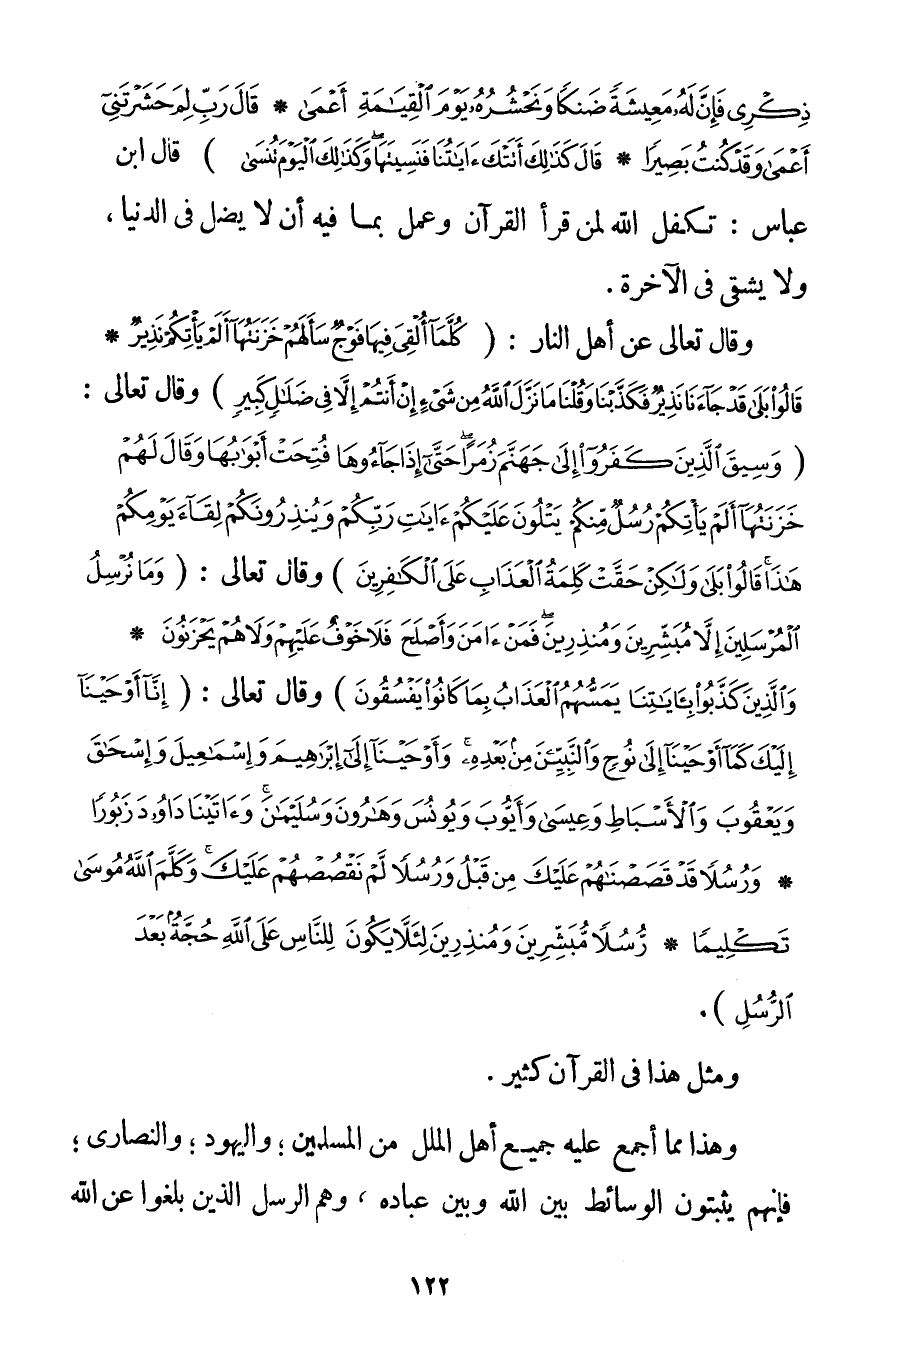 ذِكْرِى فَإِنَّ لَهُۥ مَعِيشَةً ضَنكًا وَنَحْشُرُهُۥ يَوْمَ ٱلْقِيَٰمَةِ أَعْمَىٰ * قَالَ رَبِّ لِمَ حَشَرْتَنِىٓ
أَعْمَىٰ وَقَدْ كُنتُ بَصِيرًا * قَالَ كَذَٰلِكَ أَتَتْكَ ءَايَٰتُنَا فَنَسِيتَهَا ۖ وَكَذَٰلِكَ ٱلْيَوْمَ تُنسَىٰ ) قال ابن
عباس : تكفل الله لمن قرأ القرآن وعمل بما فيه أن لا يضل فى الدنيا ،
ولا يشقى فى الآخرة .
وقال تعالى عن أهل النار : ( كُلَّمَآ أُلْقِىَ فِيهَا فَوْجٌ سَأَلَهُمْ خَزَنَتُهَآ أَلَمْ يَأْتِكُمْ نَذِيرٌ *
قَالُوا۟ بَلَىٰ قَدْ جَآءَنَا نَذِيرٌ فَكَذَّبْنَا وَقُلْنَا مَا نَزَّلَ ٱللَّهُ مِن شَىْءٍ إِنْ أَنتُمْ إِلَّا فِى ضَلَٰلٍ كَبِيرٍ ) وقال تعالى :
( وَسِيقَ ٱلَّذِينَ كَفَرُوٓا۟ إِلَىٰ جَهَنَّمَ زُمَرًا ۖ حَتَّىٰٓ إِذَا جَآءُوهَا فُتِحَتْ أَبْوَٰبُهَا وَقَالَ لَهُمْ
خَزَنَتُهَآ أَلَمْ يَأْتِكُمْ رُسُلٌ مِّنكُمْ يَتْلُونَ عَلَيْكُمْ ءَايَٰتِ رَبِّكُمْ وَيُنذِرُونَكُمْ لِقَآءَ يَوْمِكُمْ
هَٰذَا ۚ قَالُوا۟ بَلَىٰ وَلَٰكِنْ حَقَّتْ كَلِمَةُ ٱلْعَذَابِ عَلَى ٱلْكَٰفِرِينَ ) وقال تعالى : ( وَمَا نُرْسِلُ
ٱلْمُرْسَلِينَ إِلَّا مُبَشِّرِينَ وَمُنذِرِينَ ۖ فَمَنْ ءَامَنَ وَأَصْلَحَ فَلَا خَوْفٌ عَلَيْهِمْ وَلَا هُمْ يَحْزَنُونَ *
وَٱلَّذِينَ كَذَّبُوا۟ بِـَٔايَٰتِنَا يَمَسُّهُمُ ٱلْعَذَابُ بِمَا كَانُوا۟ يَفْسُقُونَ ) وقال تعالى : ( إِنَّآ أَوْحَيْنَآ
إِلَيْكَ كَمَآ أَوْحَيْنَآ إِلَىٰ نُوحٍ وَٱلنَّبِيِّـۧنَ مِنۢ بَعْدِهِۦ ۚ وَأَوْحَيْنَآ إِلَىٰٓ إِبْرَٰهِيمَ وَإِسْمَٰعِيلَ وَإِسْحَٰقَ
وَيَعْقُوبَ وَٱلْأَسْبَاطِ وَعِيسَىٰ وَأَيُّوبَ وَيُونُسَ وَهَٰرُونَ وَسُلَيْمَٰنَ ۚ وَءَاتَيْنَا دَاوُۥدَ زَبُورًا
* وَرُسُلًا قَدْ قَصَصْنَٰهُمْ عَلَيْكَ مِن قَبْلُ وَرُسُلًا لَّمْ نَقْصُصْهُمْ عَلَيْكَ ۚ وَكَلَّمَ ٱللَّهُ مُوسَىٰ
تَكْلِيمًا * رُّسُلًا مُّبَشِّرِينَ وَمُنذِرِينَ لِئَلَّا يَكُونَ لِلنَّاسِ عَلَى ٱللَّهِ حُجَّةٌۢ بَعْدَ
ٱلرُّسُلِ ) .
ومثل هذا فى القرآن كثير .
وهذا مما أجمع عليه جميع أهل الملل من المسلمين ؛ واليهود ؛ والنصارى ؛
فإنهم يثبتون الوسائط بين الله وبين عباده ، وهم الرسل الذين بلغوا عن الله
١٢٢